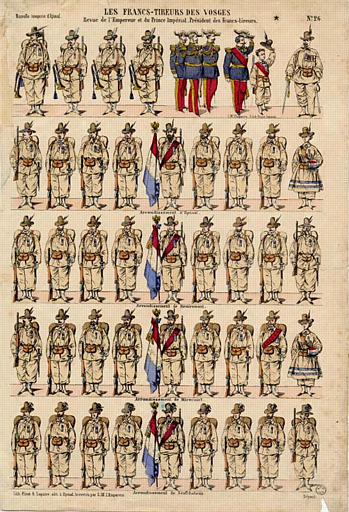 LES FRANCS-TIREURS DES VOSGES
Nouvelle imagerie d'Epinal.
Revue de l'Empereur et du Prince Impérial, Président des francs-tireurs.
Nº 26
Arrondissement d'Epinal.
Arrondissement de Remiremont.
Arrondissement de Mirecourt.
Arrondissement de Neufchateau.
Lith. Pinot & Sagaire, edit. à Epinal, brevetés par S.M. l'Empereur.
Déposé.